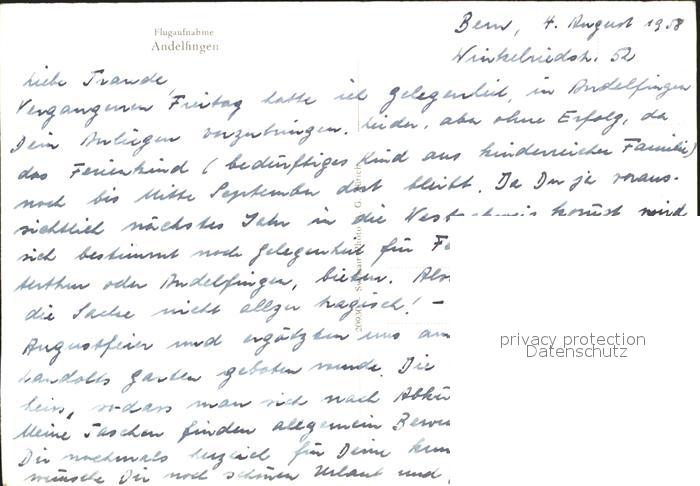 Flugaufnahme
Andelfingen
Bern, 4. August 1958
Winkelriedstr. 52
Liebe Traude,
Vergangenen Freitag hatte ich Gelegenheit, in Andelfingen
Dein Anliegen vorzubringen. Leider, aber ohne Erfolg, da
das Ferienkind (bedürftiges Kind aus kinderreicher Familie)
noch bis Mitte September dort bleibt. Da Du ja voraus-
sichtlich nächstes Jahr in die kommst wird
sich bestimmt noch Gelegenheit für
oder Andelfingen, bieten. Also
die Sache nicht allzu tragisch! –
Augustfeier und ergötzten uns am
Landolts Garten geboten wurde. Die
heiss, sodass man sich nach
Meine Taschen finden allgemein
Dir nochmals herzlich für Deine
wünsche Dir noch schönen Urlaub und
privacy protection
Datenschutz